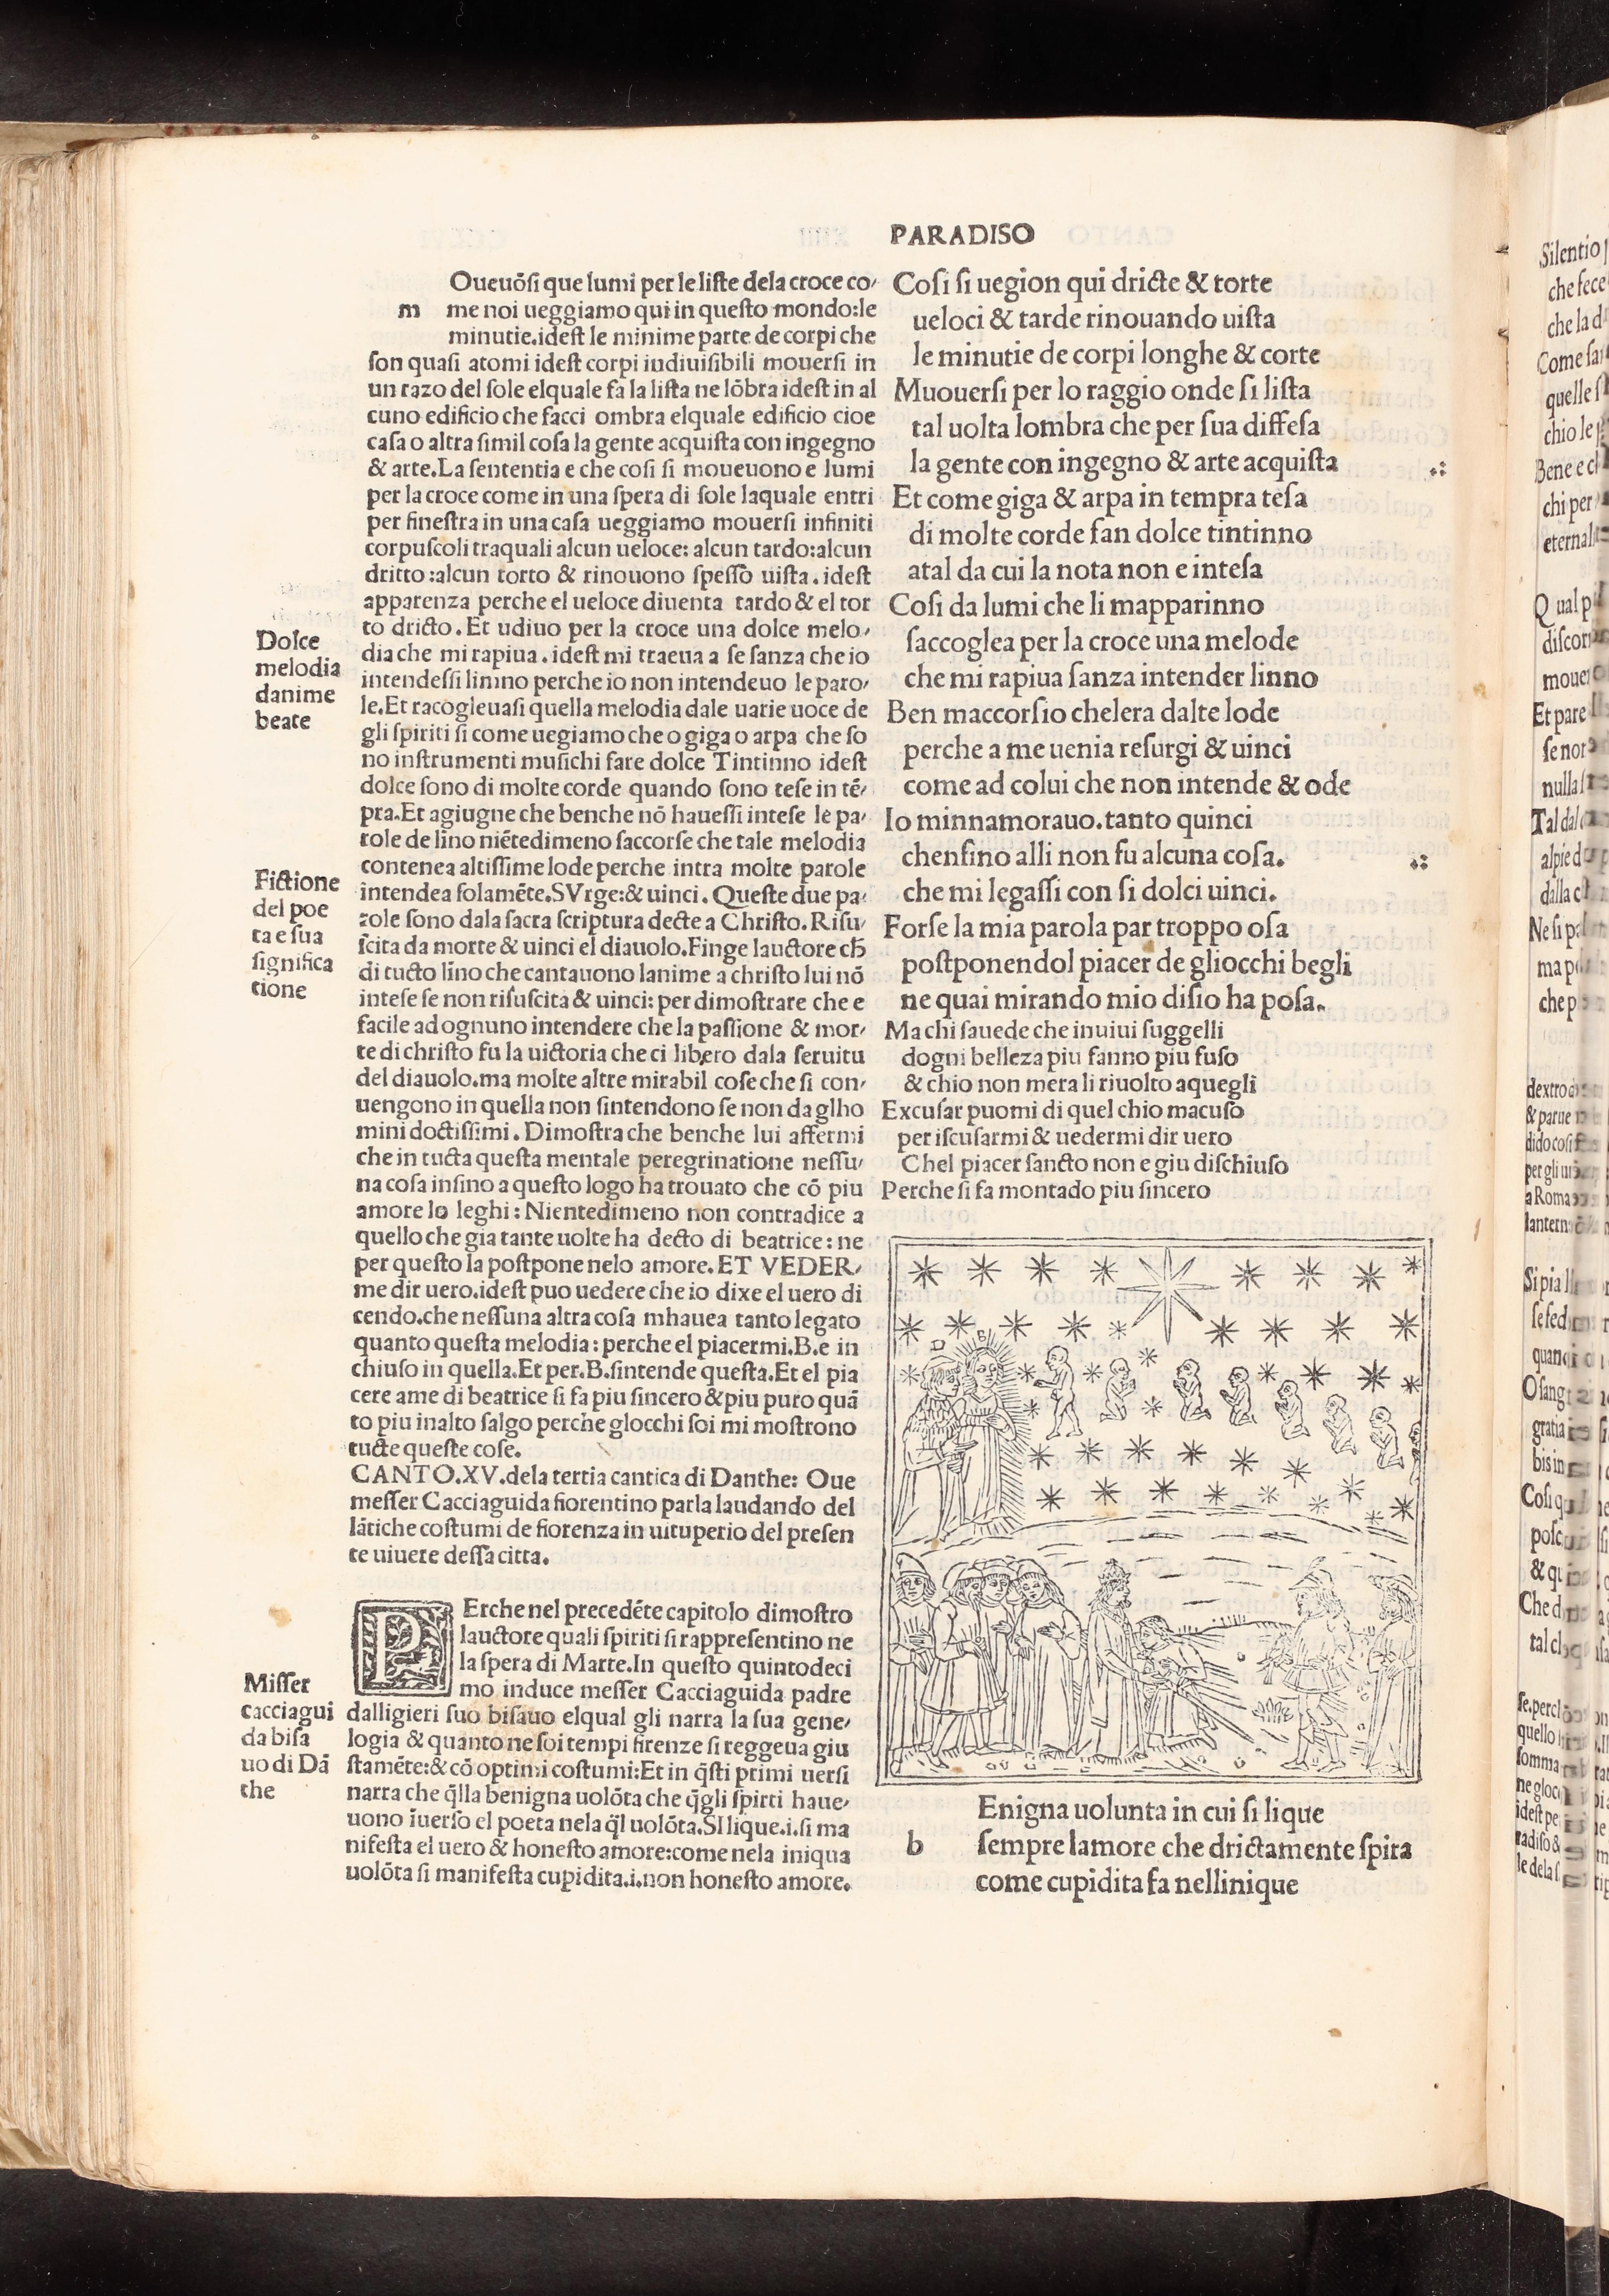 PARADISO
Oueuōſi que lumi per le liſte dela croce co/
m me noi ueggiamo qui in queſto mondo:le
minutie.ideſt le minime parte de corpi che
ſon quaſi atomi ideſt corpi indiuiſibili mouerſi in
un razo del ſole elquale fa la liſta ne lōbra ideſt in al
cuno edificio che facci ombra elquale edificio cioe
caſa o altra ſimil coſa la gente acquiſta con ingegno
& arte.La ſententia e che coſi ſi moueuono e lumi
per la croce come in una ſpera di ſole laquale entri
per fineſtra in una caſa ueggiamo mouerſi infiniti
corpuſcoli traquali alcun ueloce: alcun tardo:alcun
dritto:alcun torto & rinouono ſpeſſo uiſta.ideſt
apparenza perche el ueloce diuenta tardo & el tor
to dricto. Et udiuo per la croce una dolce melo/
dia che mi rapiua.ideſt mi traeua a ſe ſanza che io
intendeſſi linino perche io non intendeuo le paro/
le.Et racogleuaſi quella melodia dale uarie uoce de
gli ſpiriti ſi come uegiamo che o giga o arpa che ſo
no inſtrumenti muſichi fare dolce Tintinno ideſt
dolce ſono di molte corde quando ſono teſe in tē/
pra.Et agiugne che benche nō haueſſi inteſe le pa/
role de lino niētedimeno ſaccorſe che tale melodia
contenea altiſſime lode perche intra molte parole
intendea ſolamēte.SVrge:& uinci. Queſte due pa/
role ſono dala ſacra ſcriptura decte a Chriſto. Riſu/
ſcita da morte & uinci el diauolo.Finge lauctore ch̄
di tucto līno che cantauono lanime a chriſto lui nō
inteſe ſe non riſuſcita & uinci: per dimoſtrare che e
facile ad ognuno intendere che la paſſione & mor/
te di chriſto fu la uictoria che ci libero dala ſeruitu
del diauolo.ma molte altre mirabil coſe che ſi con/
uengono in quella non ſintendono ſe non da glho
mini doctiſſimi. Dimoſtra che benche lui affermi
che in tucta queſta mentale peregrinatione neſſu/
na coſa inſino a queſto logo ha trouato che cō piu
amore lo leghi: Nientedimeno non contradice a
quello che gia tante uolte ha decto di beatrice: ne
per queſto la poſtpone nelo amore. ET VEDER/
me dir uero.ideſt puo uedere che io dixe el uero di
cendo.che neſſuna altra coſa mhauea tanto legato
quanto queſta melodia: perche el piacermi.B.e in
chiuſo in quella.Et per.B.ſintende queſta.Et el pia
cere ame di beatrice ſi fa piu ſincero & piu puro quā
to piu inalto ſalgo perche glocchi ſoi mi moſtrono
tucte queſte coſe.
CANTO.XV.dela tertia cantica di Danthe: Oue
meſſer Cacciaguida fiorentino parla laudando del
lātiche coſtumi de fiorenza in uituperio del preſen
te uiuere deſſa citta.
PErche nel precedēte capitolo dimoſtro
lauctore quali ſpiriti ſi rappreſentino ne
la ſpera di Marte.In queſto quintodeci
mo induce meſſer Cacciaguida padre
dalligieri ſuo biſauo elqual gli narra la ſua gene/
logia & quanto ne ſoi tempi firenze ſi reggeua giu
ſtamēte:& cō optimi coſtumi:Et in q̄ſti primi uerſi
narra che q̄lla benigna uolōta che q̄gli ſpirti haue/
uono īuerſo el poeta nela q̄l uolōta.SI lique.i.ſi ma
nifeſta el uero & honeſto amore:come nela iniqua
uolōta ſi manifeſta cupidita.i.non honeſto amore.
Dolce
melodia
danime
beate
Fictione
del poe
ta e ſua
ſignifica
tione
Miſſer
cacciagui
da biſa
uo di Dā
the
Coſi ſi uegion qui dricte & torte
ueloci & tarde rinouando uiſta
le minutie de corpi longhe & corte
Muouerſi per lo raggio onde ſi liſta
tal uolta lombra che per ſua diffeſa
la gente con ingegno & arte acquiſta
Et come giga & arpa in tempra teſa
di molte corde fan dolce tintinno
atal da cui la nota non e inteſa
Coſi da lumi che li mapparinno
ſaccoglea per la croce una melode
che mi rapiua ſanza intender linno
Ben maccorſio chelera dalte lode
perche a me uenia reſurgi & uinci
come ad colui che non intende & ode
Io minnamorauo.tanto quinci
chenſino alli non fu alcuna coſa.
che mi legaſſi con ſi dolci uinci.
Forſe la mia parola par troppo oſa
poſtponendol piacer de gliocchi begli
ne quai mirando mio diſio ha poſa.
Ma chi ſauede che inuiui ſuggelli
dogni belleza piu fanno piu ſuſo
& chio non mera li riuolto aquegli
Excuſar puomi di quel chio macuſo
per iſcuſarmi & uedermi dir uero
Chel piacer ſancto non e giu diſchiuſo
Perche ſi fa montado piu ſincero
D B
Enigna uolunta in cui ſi lique
b ſempre lamore che drictamente ſpira
come cupidita fa nellinique